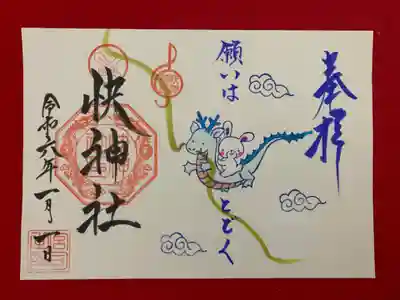 奉拝
願いは
とどく
快神社
令和六年一月一日